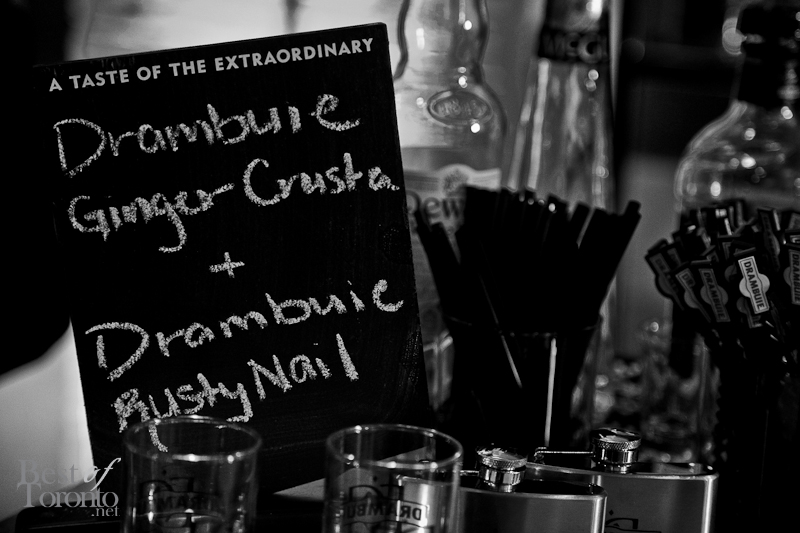 A TASTE OF THE EXTRAORDINARY
Drambuie
Ginger Crusta
+
Drambuie
Rusty Nail
Dew
DRAMBUIE
DRAMBUIE
DRAMBUIE
Best of
Toronto
.net